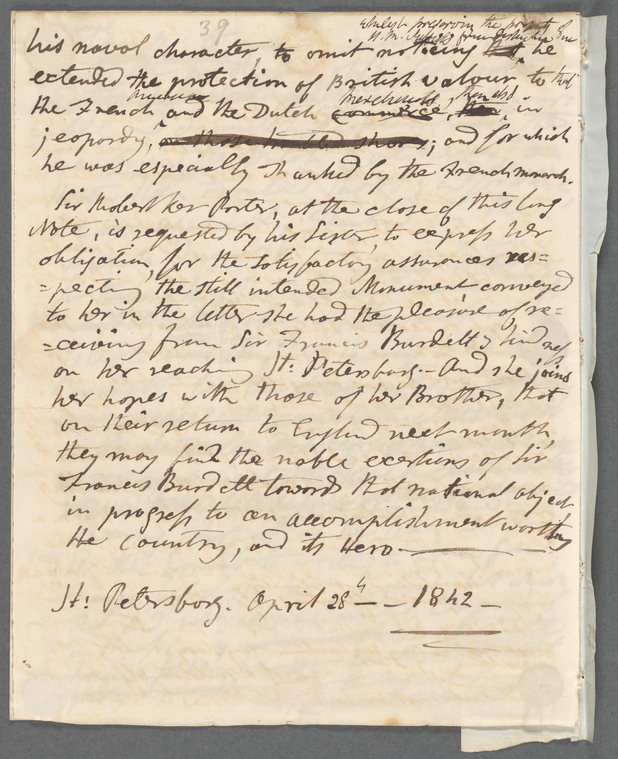 39
whilst preserving the
his naval character, to omit noticing he
extended the protection of British valour to that
the French American and the Dutch commerce Merchants, then also in
jeopardy, on those troubled shores; and for which
he was especially thanked by the French monarch.
Sir Robert Ker Porter, at the close of this long
Note, is requested by his Sister, to express her
obligation, for the satisfactory assurances res=
=pecting the still intended Monument conveyed
to her in the letter she had the pleasure of re=
=ceiving from Sir Francis Burdett's kindness
on her reaching St: Petersburg.- And she joins
her hopes with those of her Brother, that
on their return to England next month,
they may find the noble exertions of Sir
Francis Burdett towards that national object,
in progress to an accomplishment worthy
the Country, and its Hero.
St: Petersburg. April 28th - 1842 -